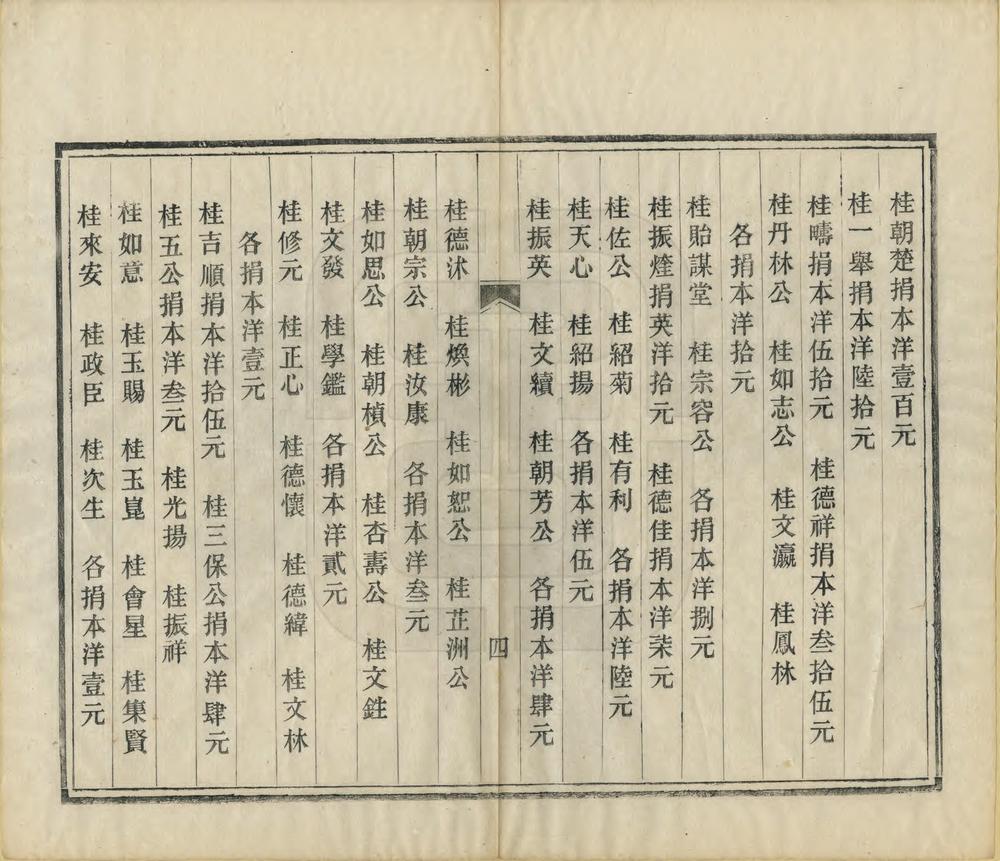 桂朝楚捐本洋壹百元
桂一舉捐本洋陸拾元
桂疇捐本洋伍拾元　桂德祥捐本洋叁拾伍元
桂丹林公　桂如志公　桂文瀛　桂鳳林
各捐本洋拾元
桂貽謀堂　桂宗容公　各捐本洋捌元
桂振煃捐英洋拾元　桂德佳捐本洋柒元
桂佐公　桂紹菊　桂有利　各捐本洋陸元
桂天心　桂紹揚　各捐本洋伍元
桂振英　桂文續　桂朝芳公　各捐本洋肆元
四
桂德沭　桂煥彬　桂如恕公　桂芷洲公
桂朝宗公　桂汝康　各捐本洋叁元
桂如思公　桂朝楨公　桂杏壽公　桂文鉎
桂文發　桂學鑑　各捐本洋貳元
桂修元　桂正心　桂德懷　桂德緯　桂文林
各捐本洋壹元
桂吉順捐本洋拾伍元　桂三保公捐本洋肆元
桂五公捐本洋叁元　桂光揚　桂振祥
桂如意　桂玉賜　桂玉崑　桂會星　桂集賢
桂來安　桂政臣　桂次生　各捐本洋壹元